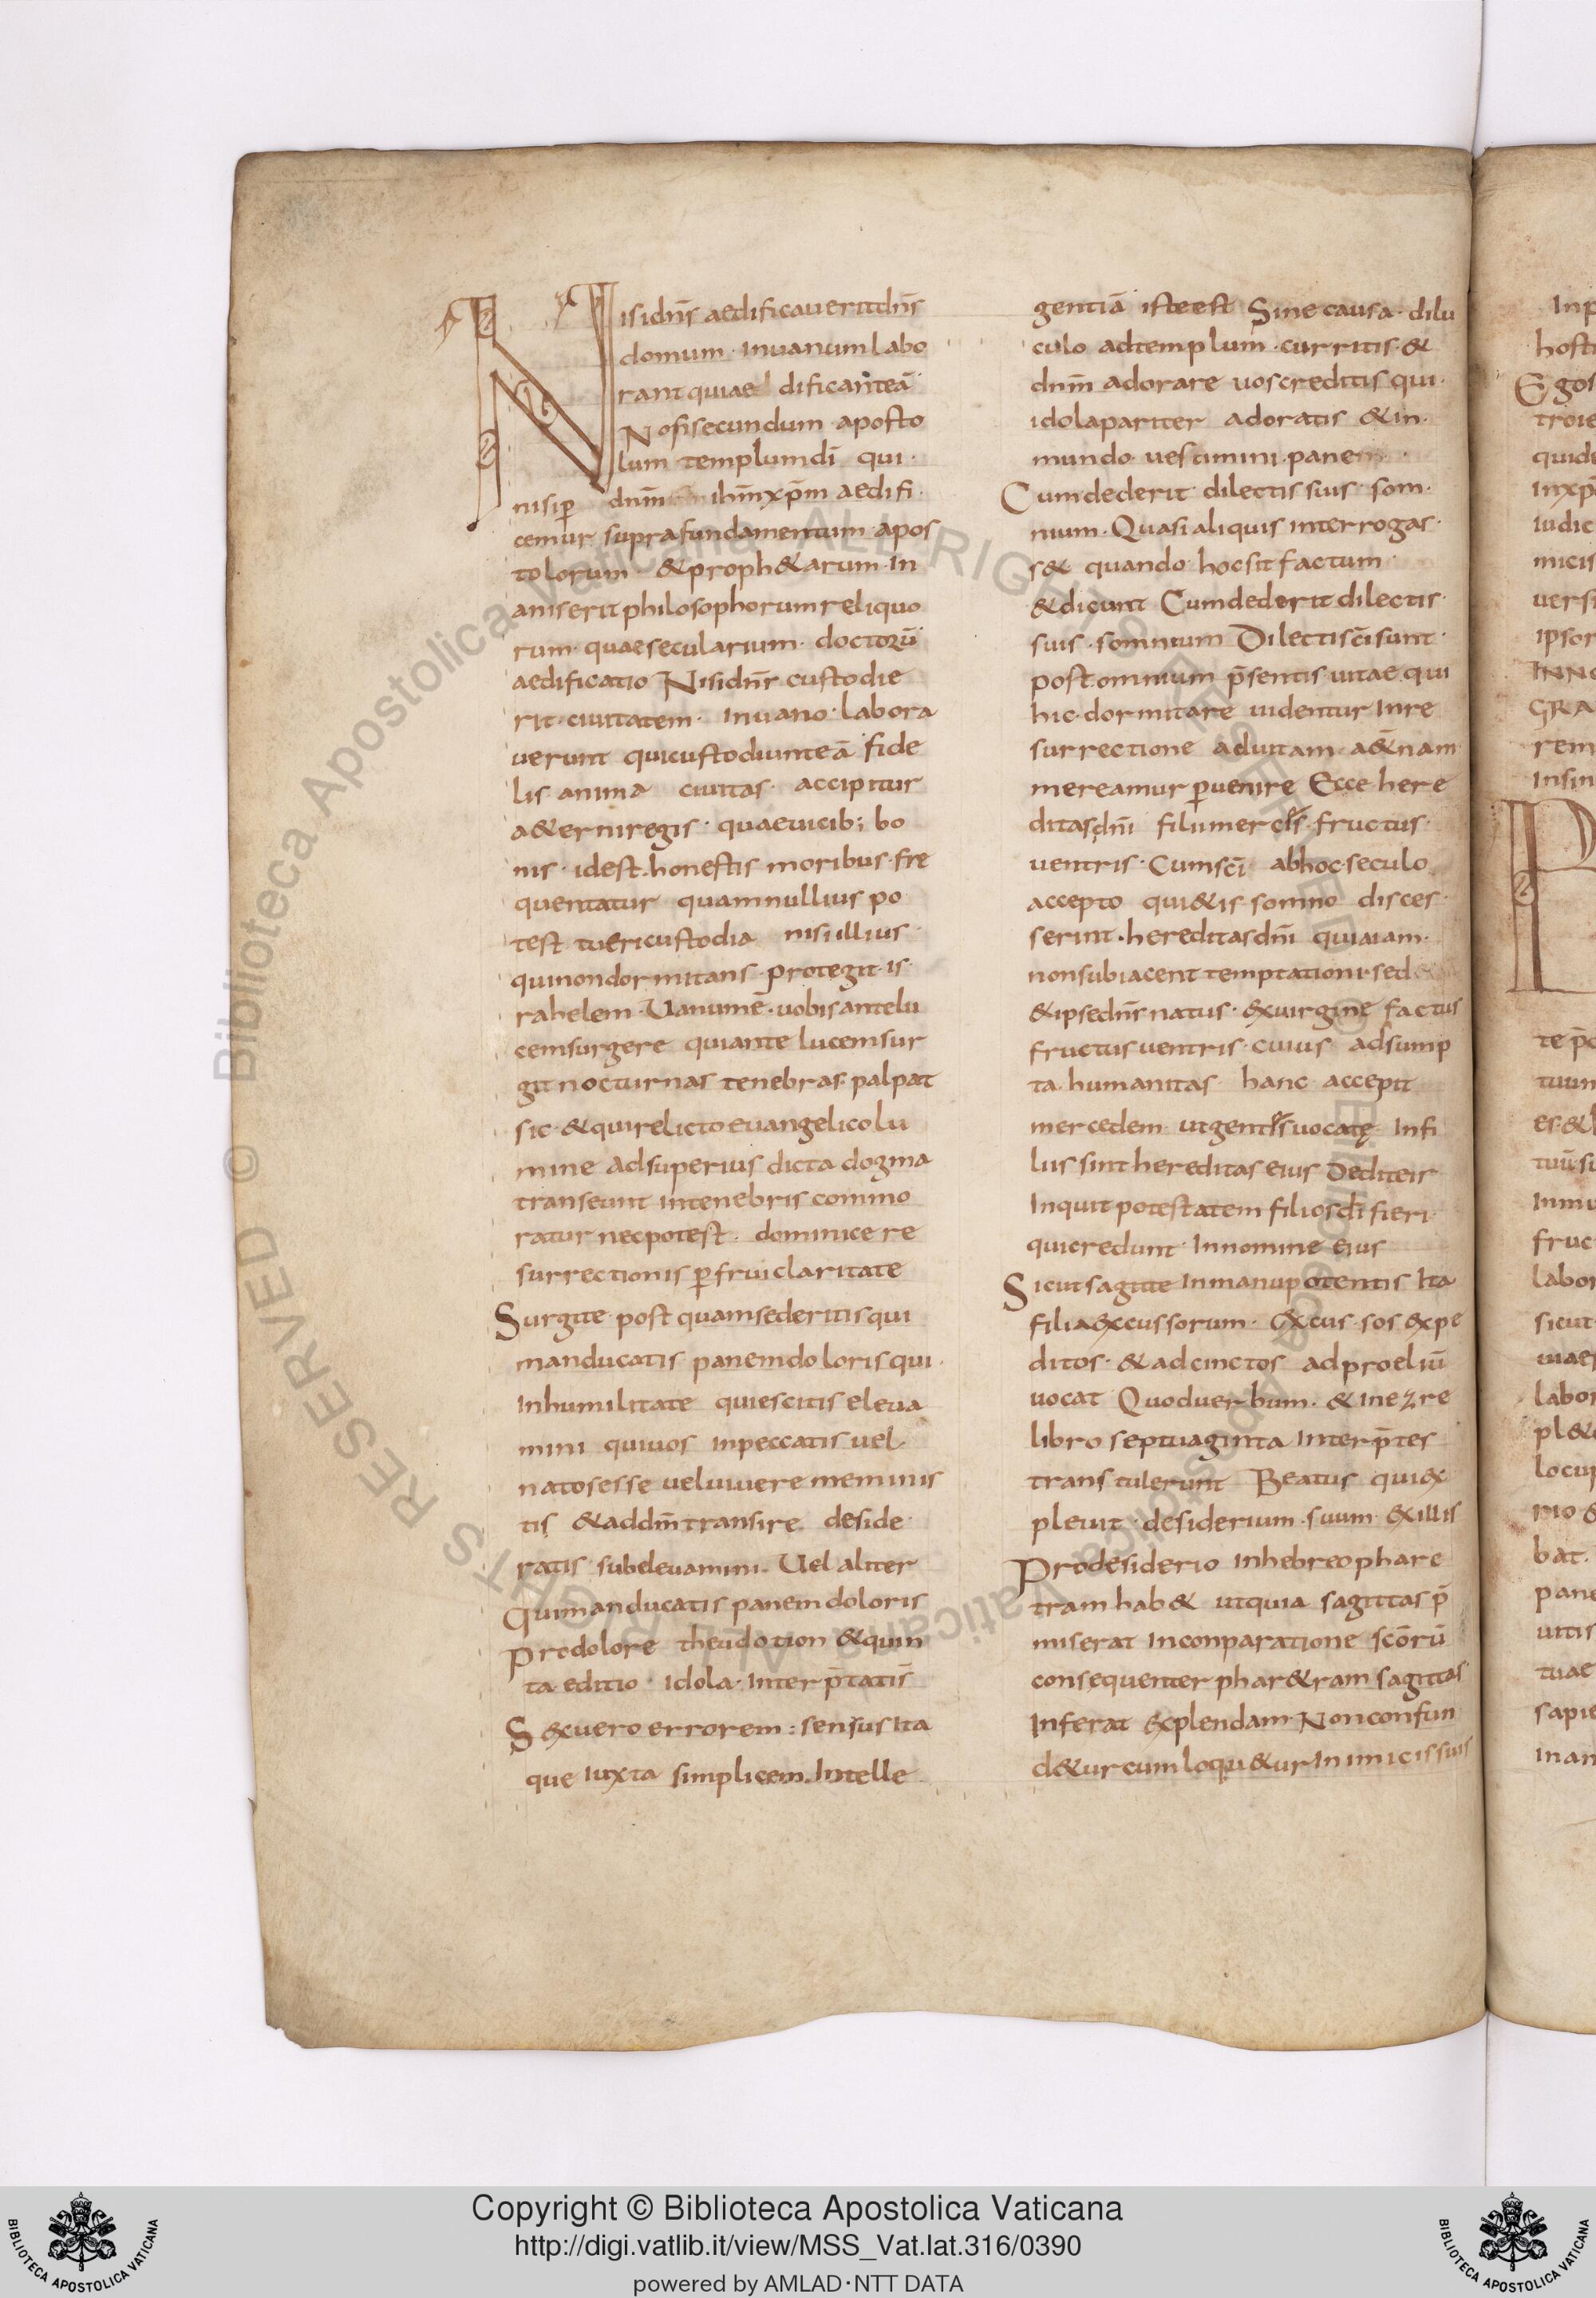 Nisidn̄s aedificaueritdn̄s
domum · inuanumlabo
rantquiae dificanteā
Nossecundum aposto
lum templumdī qui ·
nisip̄ dnm̄ ihm̄xp̄m aedifi ·
cemur suprafundamentum apos
tolorum · &proph&arum · in
aniserit philosophorum reliquo
rum · quaesecularium · doctorū
aedificatio Nisidn̄s custodie
rit · ciuitatem · inuano · labora
uerunt quicustodiunteā fide
lis anima ciuitas · accipitur
a&erniregis · quaeuicib; bo
nis · idest · honestis moribus · fre
quentatur quamnullius po
test tuericustodia nisiillius ·
quinondormitans · protegit · is ·
rahelem · Uanumē · uobisantelu
cemsurgere quiante lucemsur
git nocturnas tenebras · palpat
sic · &quirelictoeuangelicolu
mine adsuperius dicta dogma
transeunt intenebris commo
ratur necpotest · dominice re
surrectionis p̄fruiclaritate
Surgite · post quamsederitisqui
manducatis panemdolorisqui ·
inhumilitate quiescitis eleua
mini quiuos inpeccatisuel ·
natosesse ueluiuere meminis
tis &addn̄m transire deside ·
ratis subleuamini · Uel aliter
Quimanducatis panem doloris
Prodolore theudotion &quin
ta editio · idola · interp̄tatis̄
Sexuero errorem : sensus ita
que iuxta simplicem · intelle
gentiā isteest Sinecausa · dilu
culo adtemplum · curritis · &
dnm̄ adorare uoscreditis qui ·
idolapariter adoratis &in ·
mundo · uestimini · panem ·
Cumdederit dilectis suis · som ·
nium · Quasi aliquis interrogas ·
s& quando hocsit factum ·
&dicunt Cumdederit dilectis ·
suis · somnium Dilectiscīsunt ·
postomnium p̄sentis uitae qui
hic · dormitare uidentur inre
surrectione aduitam a&̄nam
mereamur p̄uenire Ecce · here
ditasdn̄i filiimercis · fructus ·
uentris · Cumscī abhoc seculo
accepto qui&is somno disces ·
serint · hereditasdn̄i quiaiam ·
nonsubiacent temptationi · sed
&ipsedn̄s natus · exuirgine factus
fructusuentris · cuius adsump
ta humanitas hanc accepit
mercedem utgentisuocatę infi
lius sinthereditas eius Dediteis
inquit potestatem filiosdī fieri ·
quicredunt · innomine eius
Sicutsagitte inmanupotentis ita
filiaexcussorum · Excus · sos expe
ditos · &adcinctos adproeliū
uocat Quoduerbum · & inezre
libro septuaginta interp̄tes
transtulerunt Beatus quiex
pleuit · desiderium · suum exillis
Prodesiderio inhebreo phare
tram hab& utquia sagittas p̄
miserat inconparatione scōrū
consequenter phar&ram sagittas
inferat explendam Nonconfun
d&urcumloqu&ur inimicissuis
Copyright © Biblioteca Apostolica Vaticana
http://digi.vatlib.it/view/MSS_Vat.lat.316/0390
powered by AMLAD·NTT DATA